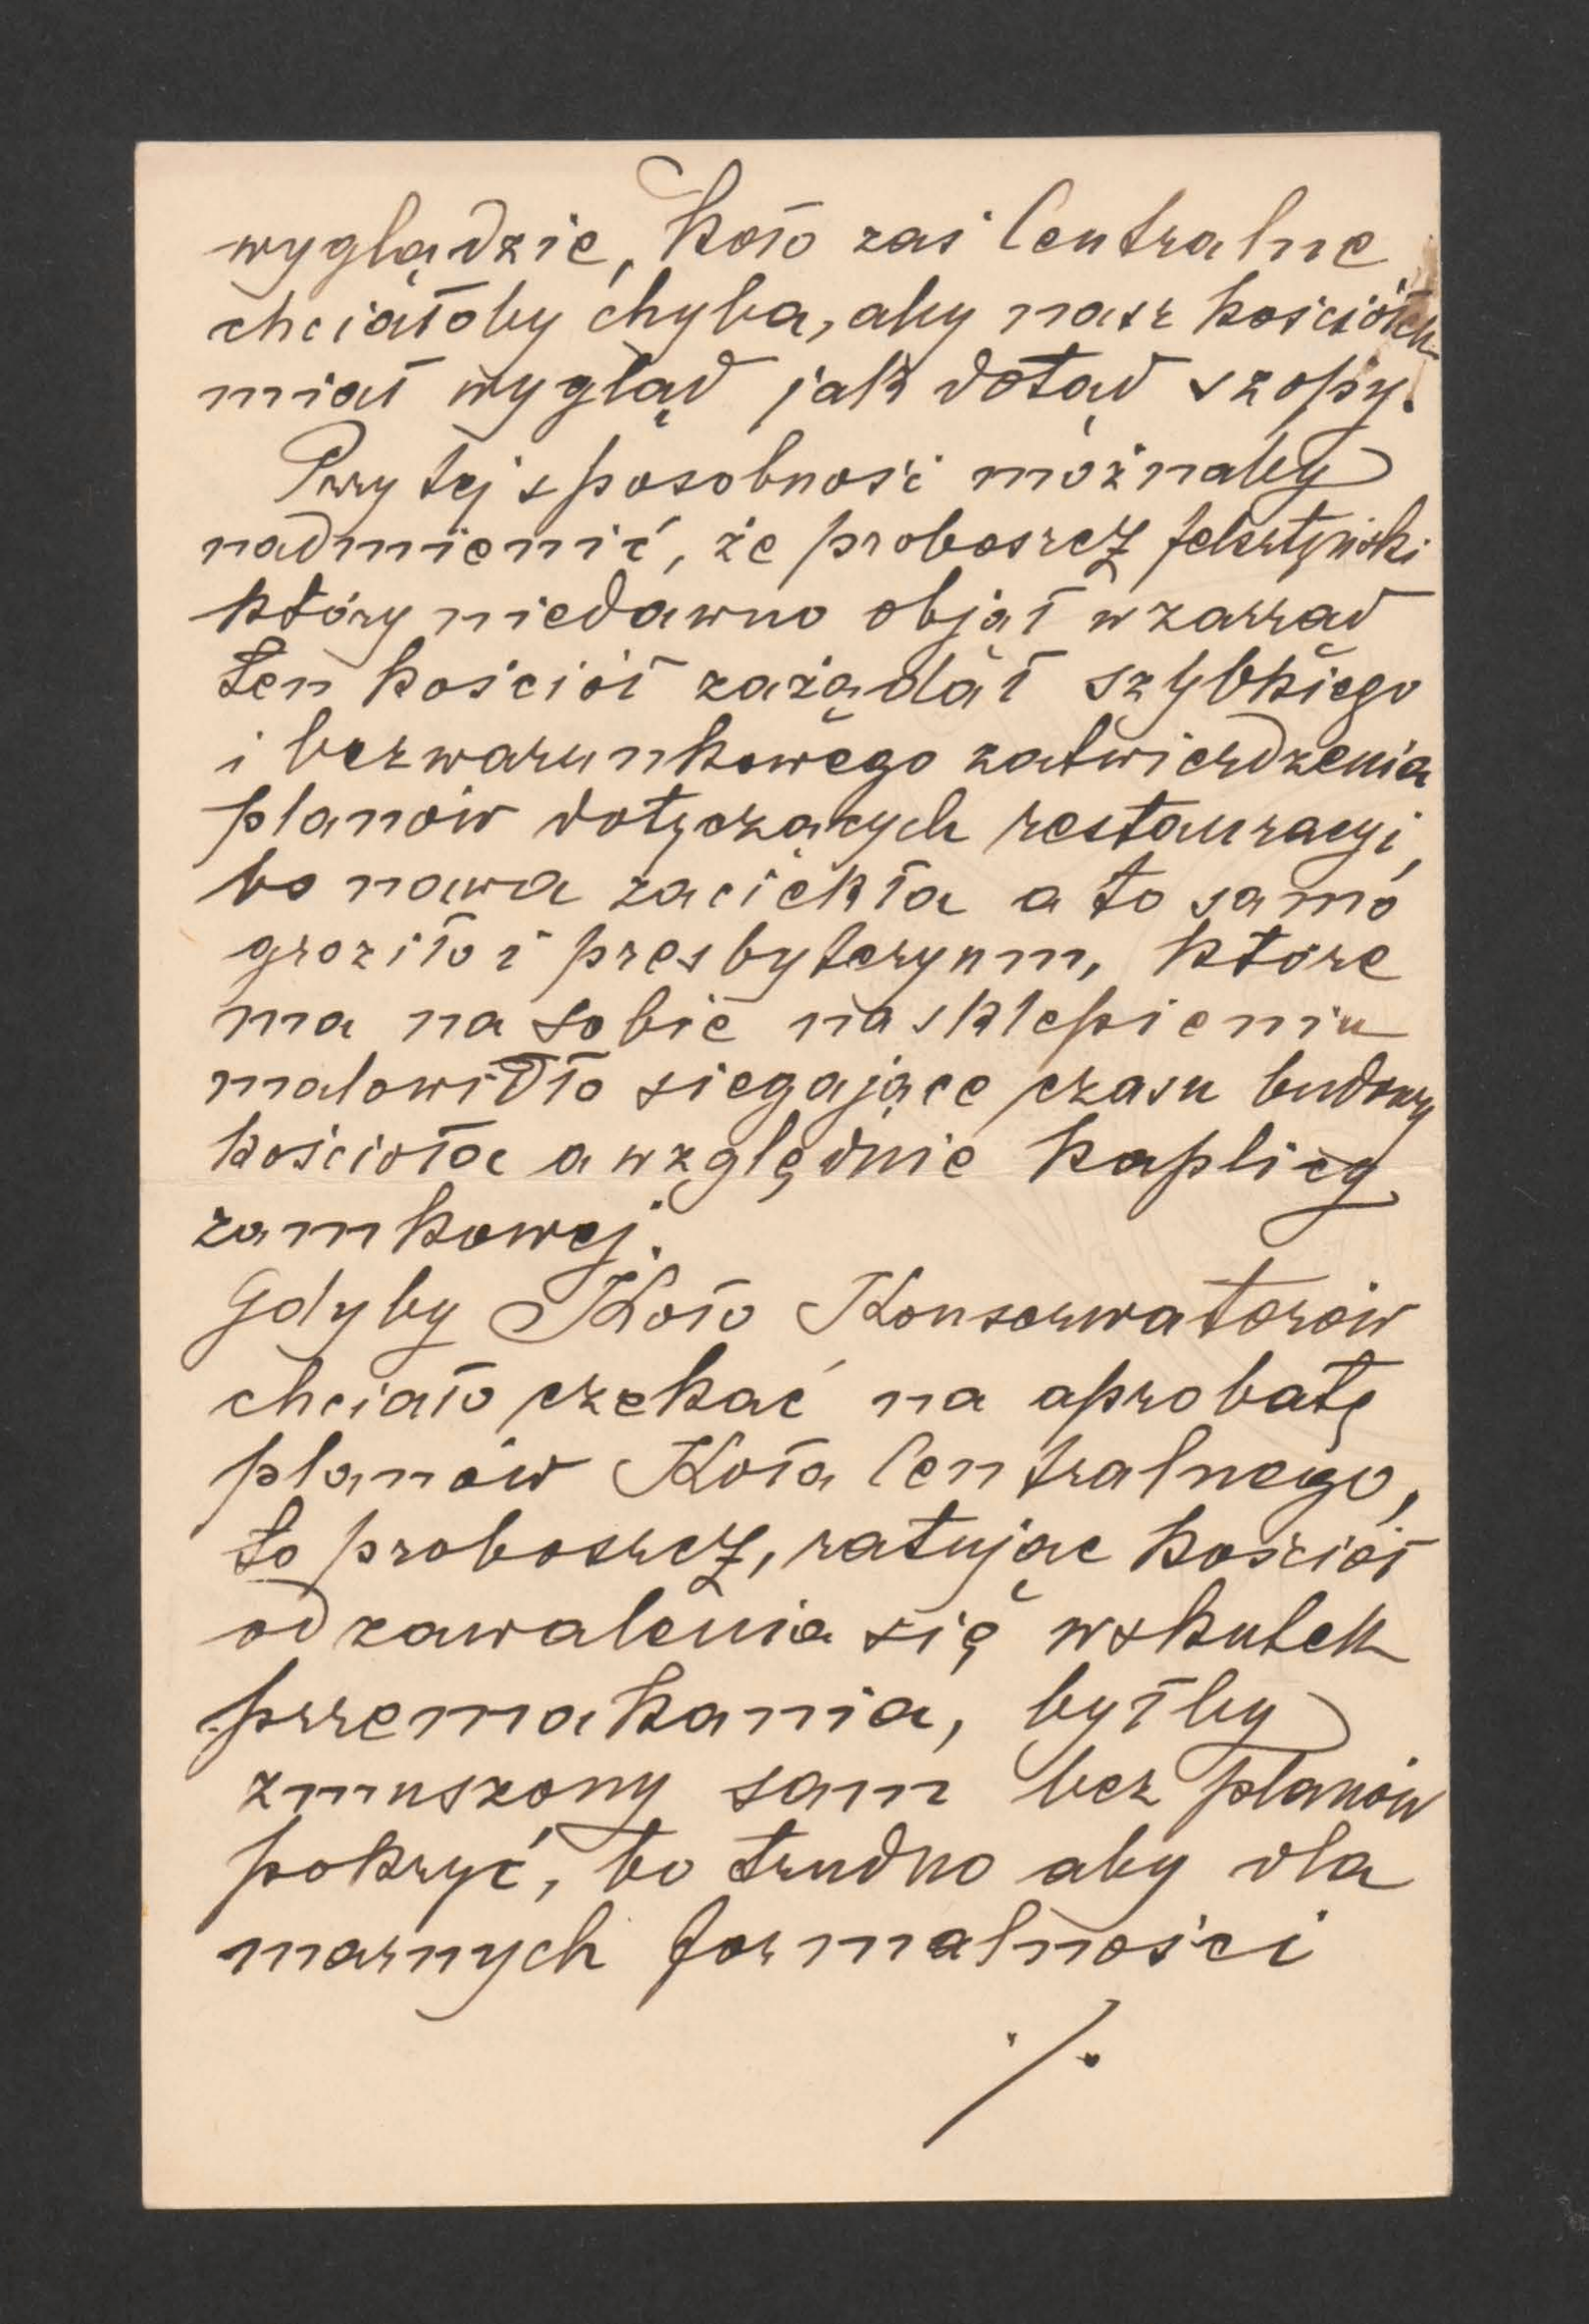 wyglądzie, Koło zaś Centralne
chciałoby chyba, aby nasz kościółek
miał wygląd jak dotąd szopy.
Przy tej sposobności możnaby
nadmienić, że proboszcz felsztyński
który niedawno objął w zarząd
ten kościół zażądał szybkiego
i bezwarunkowego zatwierdzenia
planów dotyczących restauracyi,
bo nawa zaciekła a to samo
groziło i presbyteryum, które
ma na sobie na sklepieniu
malowidło siegające czasu budowy
kościoła a względnie kaplicy
zamkowej.
Gdyby Koło Konserwatorów
chciało czekać na aprobatę
planów Koła Centralnego,
to proboszcz, ratując kościół
od zawalenia się wskutek
przemakania, byłby
zmuszony sam bez planów
pokryć, bo trudno aby dla
marnych formalności
./.